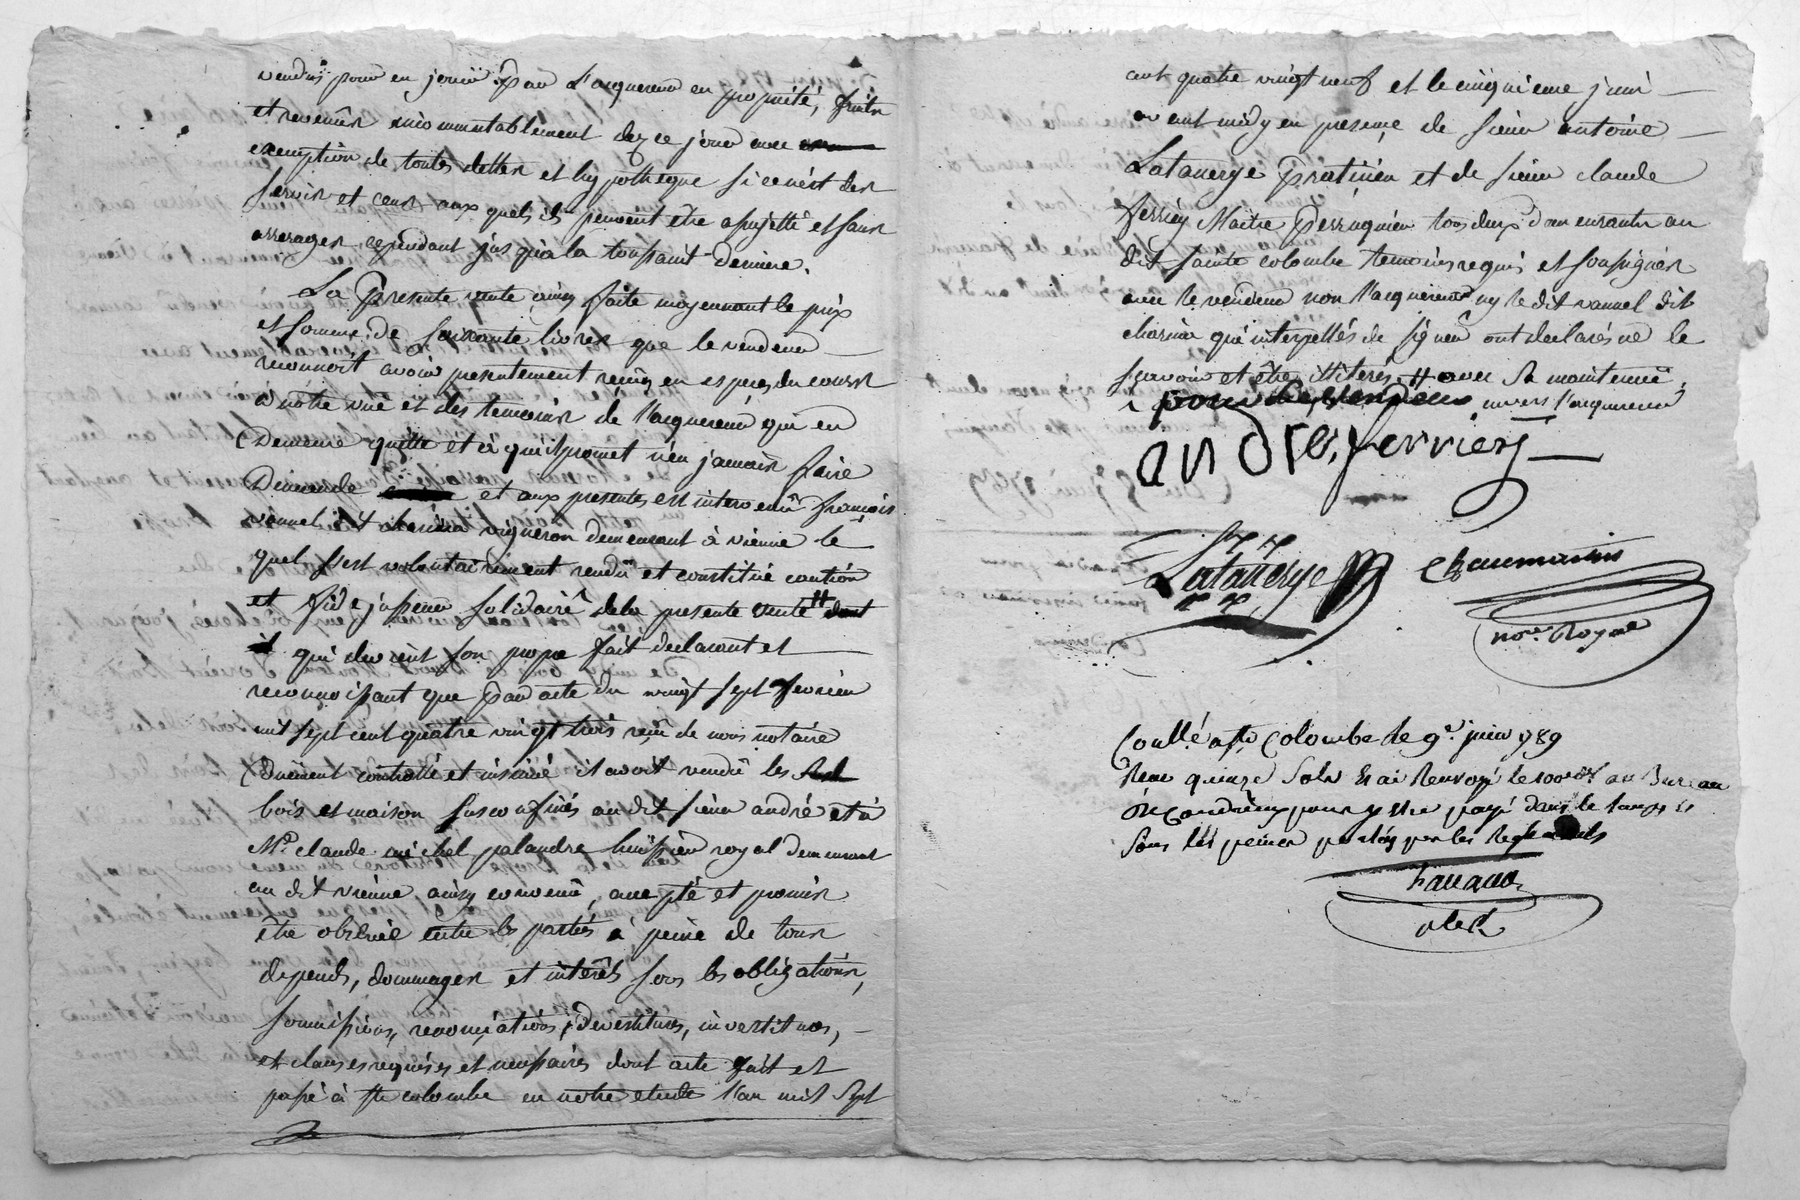 vendus pour en jouir par l'acquereur en propriété, fruits
et revenus incommutablement dez ce jour avec
exemption de toutes dettes et hypotheque si ce n'est des
servis et cens aux quels ils peuvent être assujetti et sans
arrerages cependant jusqu'à la toussaint derniere.
La presente vente ainsy faite moyennant le prix
et somme de soixante livres que le vendeur
reconnoit avoir presentement reçûe en especes du cours
à notre vuë et des temoins de l'acquereur qui en
demeure quitte et à qui il promet n'en jamais faire
demande et aux presentes est intervenu françois
vannel dit charina vigneron demeurant à vienne le
quel s'est volontairement rendû et constitué caution
et fidejusseur solidaire de la presente vente #
qui devient son propre fait declarant et
reconnoissant que par acte du vingt sept fevrier
mil sept cent quatre vingt trois reçû de nous notaire
duëment controllé et insinué il avoit vendû les
bois et maison susconfinés au dit sieur andré et à
Me claude michel palandre huissier royal demeurant
au dit vienne, ainsy convenû, accepté et promis
être observé entre les parties à peine de tous
depends, dommages et intérêts sous les obligations,
soumissions, renonciations, devestitures, investitures,
et clauses requises et necessaires dont acte fait et
passé à ste colombe en notre etude l'an mil sept
cent quatre vingt neuf et le cinquieme juin
avant midy en presence de sieur antoine
Latauerge praticien et de sieur claude
ferriey Maitre perruquier tous deux demeurants au
dit sainte colombe temoins requis et soussignés
avec le vendeur non l'acquereur ny le dit vannel dit
charina qui interpellés de signer ont declarés ne le
sçavoir et être illiterés, # avec sa maintenuë
envers l'acquereur
andre, ferriey
Latauerge
Chaumartin
nore Royal
Conllé a Ste Colombe le 9e. juin 1789
Reçu quinze sols et ai renvoyé le 100e dr au Bureau
de Condrieu pour y etre payé dans le temps et
sous les peines portées par les Reglements